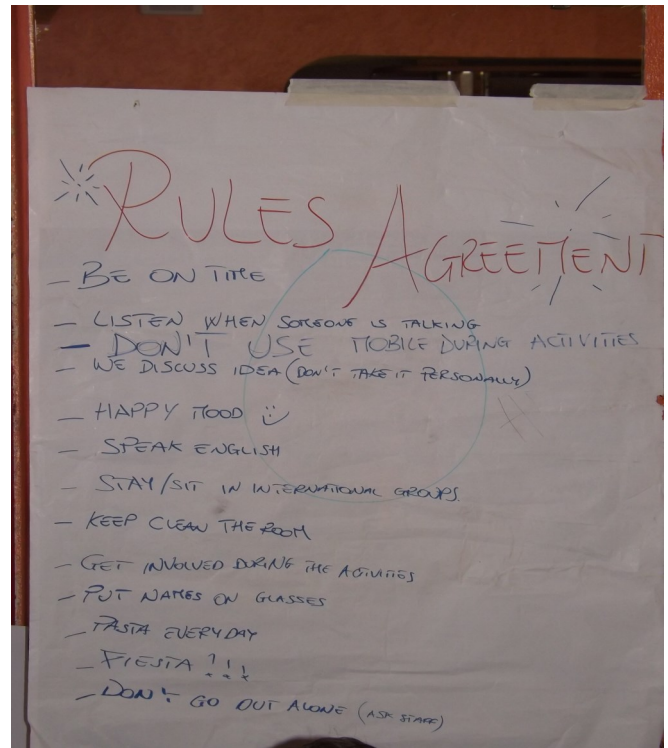 RULES AGREEMENT
- BE ON TIME
- LISTEN WHEN SOMEONE IS TALKING
- DON'T USE MOBILE DURING ACTIVITIES
- WE DISCUSS IDEA (DON'T TAKE IT PERSONALLY)
- HAPPY MOOD :)
- SPEAK ENGLISH
- STAY/SIT IN INTERNATIONAL GROUPS.
- KEEP CLEAN THE ROOM
- GET INVOLVED DURING THE ACTIVITIES
- PUT NAMES ON GLASSES
- PASTA EVERYDAY
- FIESTA !!!
- DON'T GO OUT ALONE (ASK STAFF)